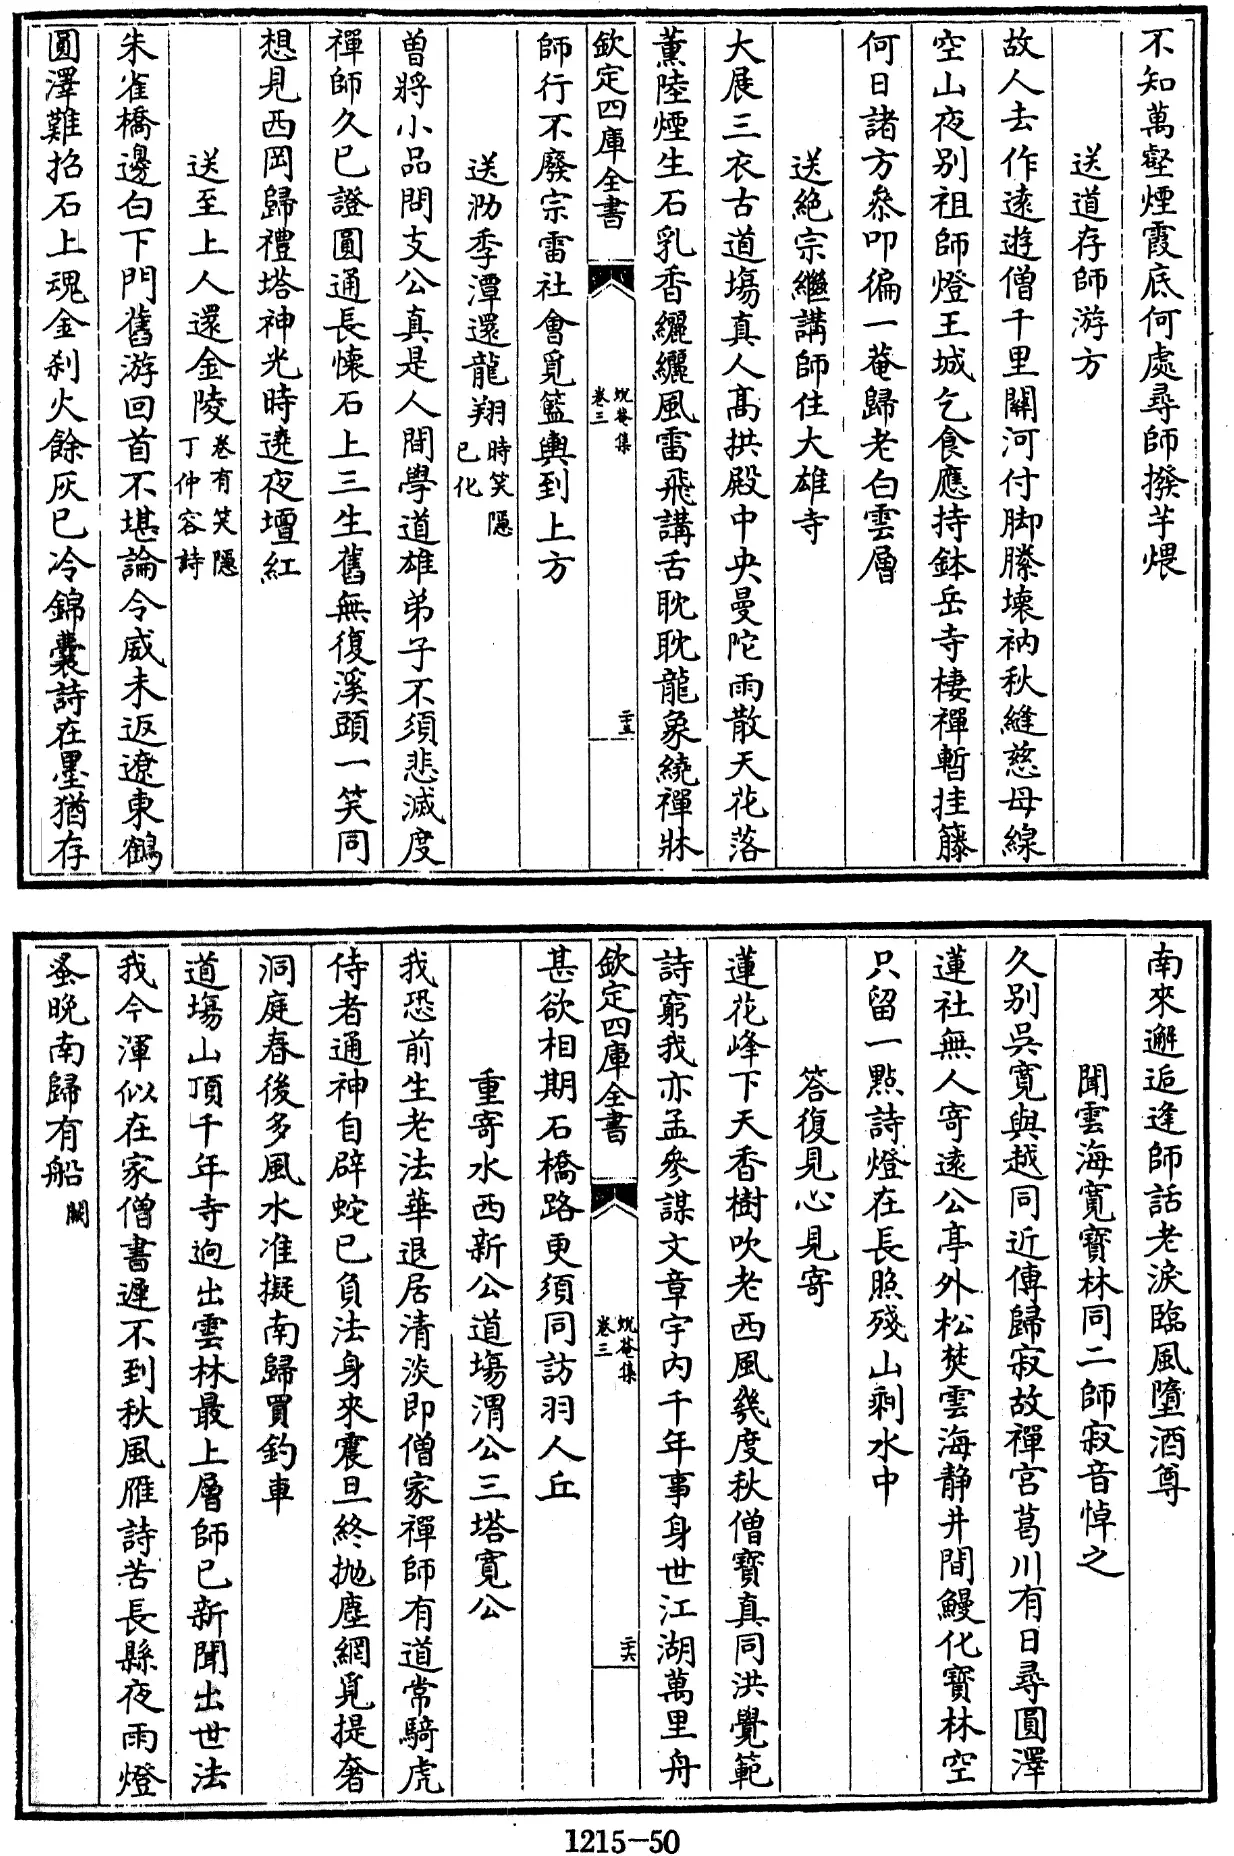 不知萬壑煙霞底何處尋師撥芋煨
送道存師游方
故人去作遠遊僧千里關河付脚縢壞衲秋縫慈母線
空山夜别祖師燈王城乞食應持鉢岳寺棲禪暫挂籐
何日諸方叅叩徧一菴歸老白雲層
送絶宗繼講師住大雄寺
大展三衣古道塲真人髙拱殿中央曼陀雨散天花落
薫陸煙生石乳香纚纚風雷飛講舌耽耽龍象繞禪牀
欽定四庫全書
蛻菴集
卷三
二十五
師行不廢宗雷社會覓籃輿到上方
送泐季潭還龍翔時笑隱
已化
曽將小品問支公真是人間學道雄弟子不須悲滅度
禪師久已證圓通長懐石上三生舊無復溪頭一笑同
想見西岡歸禮塔神光時遶夜壇紅
送至上人還金陵卷有笑隱
丁仲容詩
朱雀橋邊白下門舊游回首不堪論令威未返遼東鶴
圓澤難招石上魂金刹火餘灰已冷錦囊詩在墨猶存
南來邂逅逢師話老淚臨風墮酒尊
聞雲海寛寳林同二師寂音悼之
久别吳寛與越同近傳歸寂故禪宫葛川有日尋圓澤
蓮社無人寄逺公亭外松焚雲海静井間鰻化寳林空
只留一㸃詩燈在長照殘山剰水中
答復見心見寄
蓮花峰下天香樹吹老西風幾度秋僧寳真同洪覺範
詩窮我亦孟參謀文章宇内千年事身世江湖萬里舟
欽定四庫全書
蛻菴集
卷三
二十六
甚欲相期石橋路更須同訪羽人丘
重寄水西新公道塲渭公三塔寛公
我恐前生老法華退居清淡即僧家禪師有道常騎虎
侍者通神自辟蛇已負法身來震旦終抛塵網覓提奢
洞庭春後多風水准擬南歸買釣車
道塲山頂千年寺逈出雲林最上層師已新聞出世法
我今渾似在家僧書遲不到秋風雁詩苦長縣夜雨燈
蚤晚南歸有船闕
1215-50